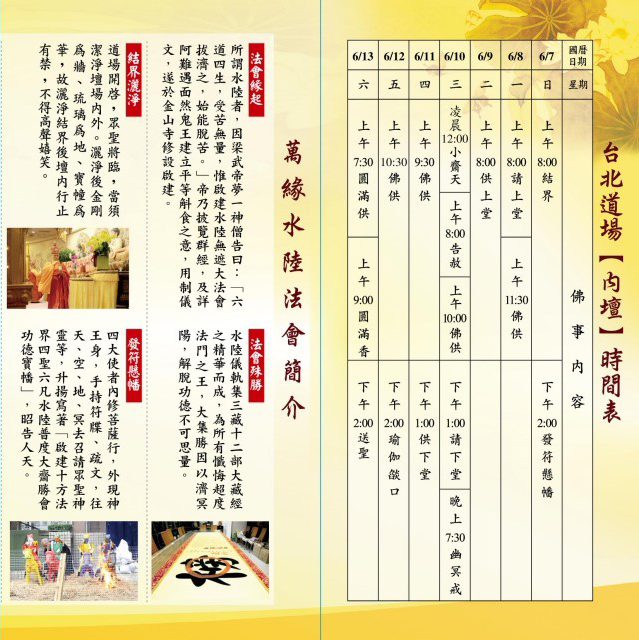 台北道場【內壇】時間表
國曆日期
星期
佛事內容
6/7
日
上午8:00結界
下午2:00發符懸幡
6/8
一
上午8:00請上堂
上午11:30佛供
6/9
二
上午8:00供上堂
6/10
三
凌晨12:00小齋天
上午8:00告赦
上午10:00佛供
下午1:00請下堂
晚上7:30幽冥戒
6/11
四
上午9:30佛供
下午1:00供下堂
6/12
五
上午10:30佛供
下午2:00瑜伽燄口
6/13
六
上午7:30圓滿供
上午9:00圓滿香
下午2:00送聖
萬緣水陸法會簡介
法會緣起
所謂水陸者，因梁武帝夢一神僧告曰：「六
道四生，受苦無量，惟啟建水陸無遮大法會
拔濟之，始能脫苦。」帝乃披覽群經，及詳
阿難遇面然鬼王建立平等斛食之意，用制儀
文，遂於金山寺修設啟建。
法會殊勝
水陸儀軌集三藏十二部大藏經
之精華而成，為所有懺悔超度
法門之王，大集勝因以濟冥
陽，解脫功德不可思量。
結界灑淨
道場開啓，眾聖將臨，當須
潔淨壇場內外。灑淨後金剛
為牆、琉璃為地、寶幢為
華，故灑淨結界後壇內行止
有禁，不得高聲嬉笑。
發符懸幡
四大使者內修菩薩行，外現神
王身，手持符牒、疏文，往
天、空、地、冥去召請眾聖神
靈等，升揚寫著「啟建十方法
界四聖六凡水陸普度大齋勝會
功德寶幡」，昭告人天。